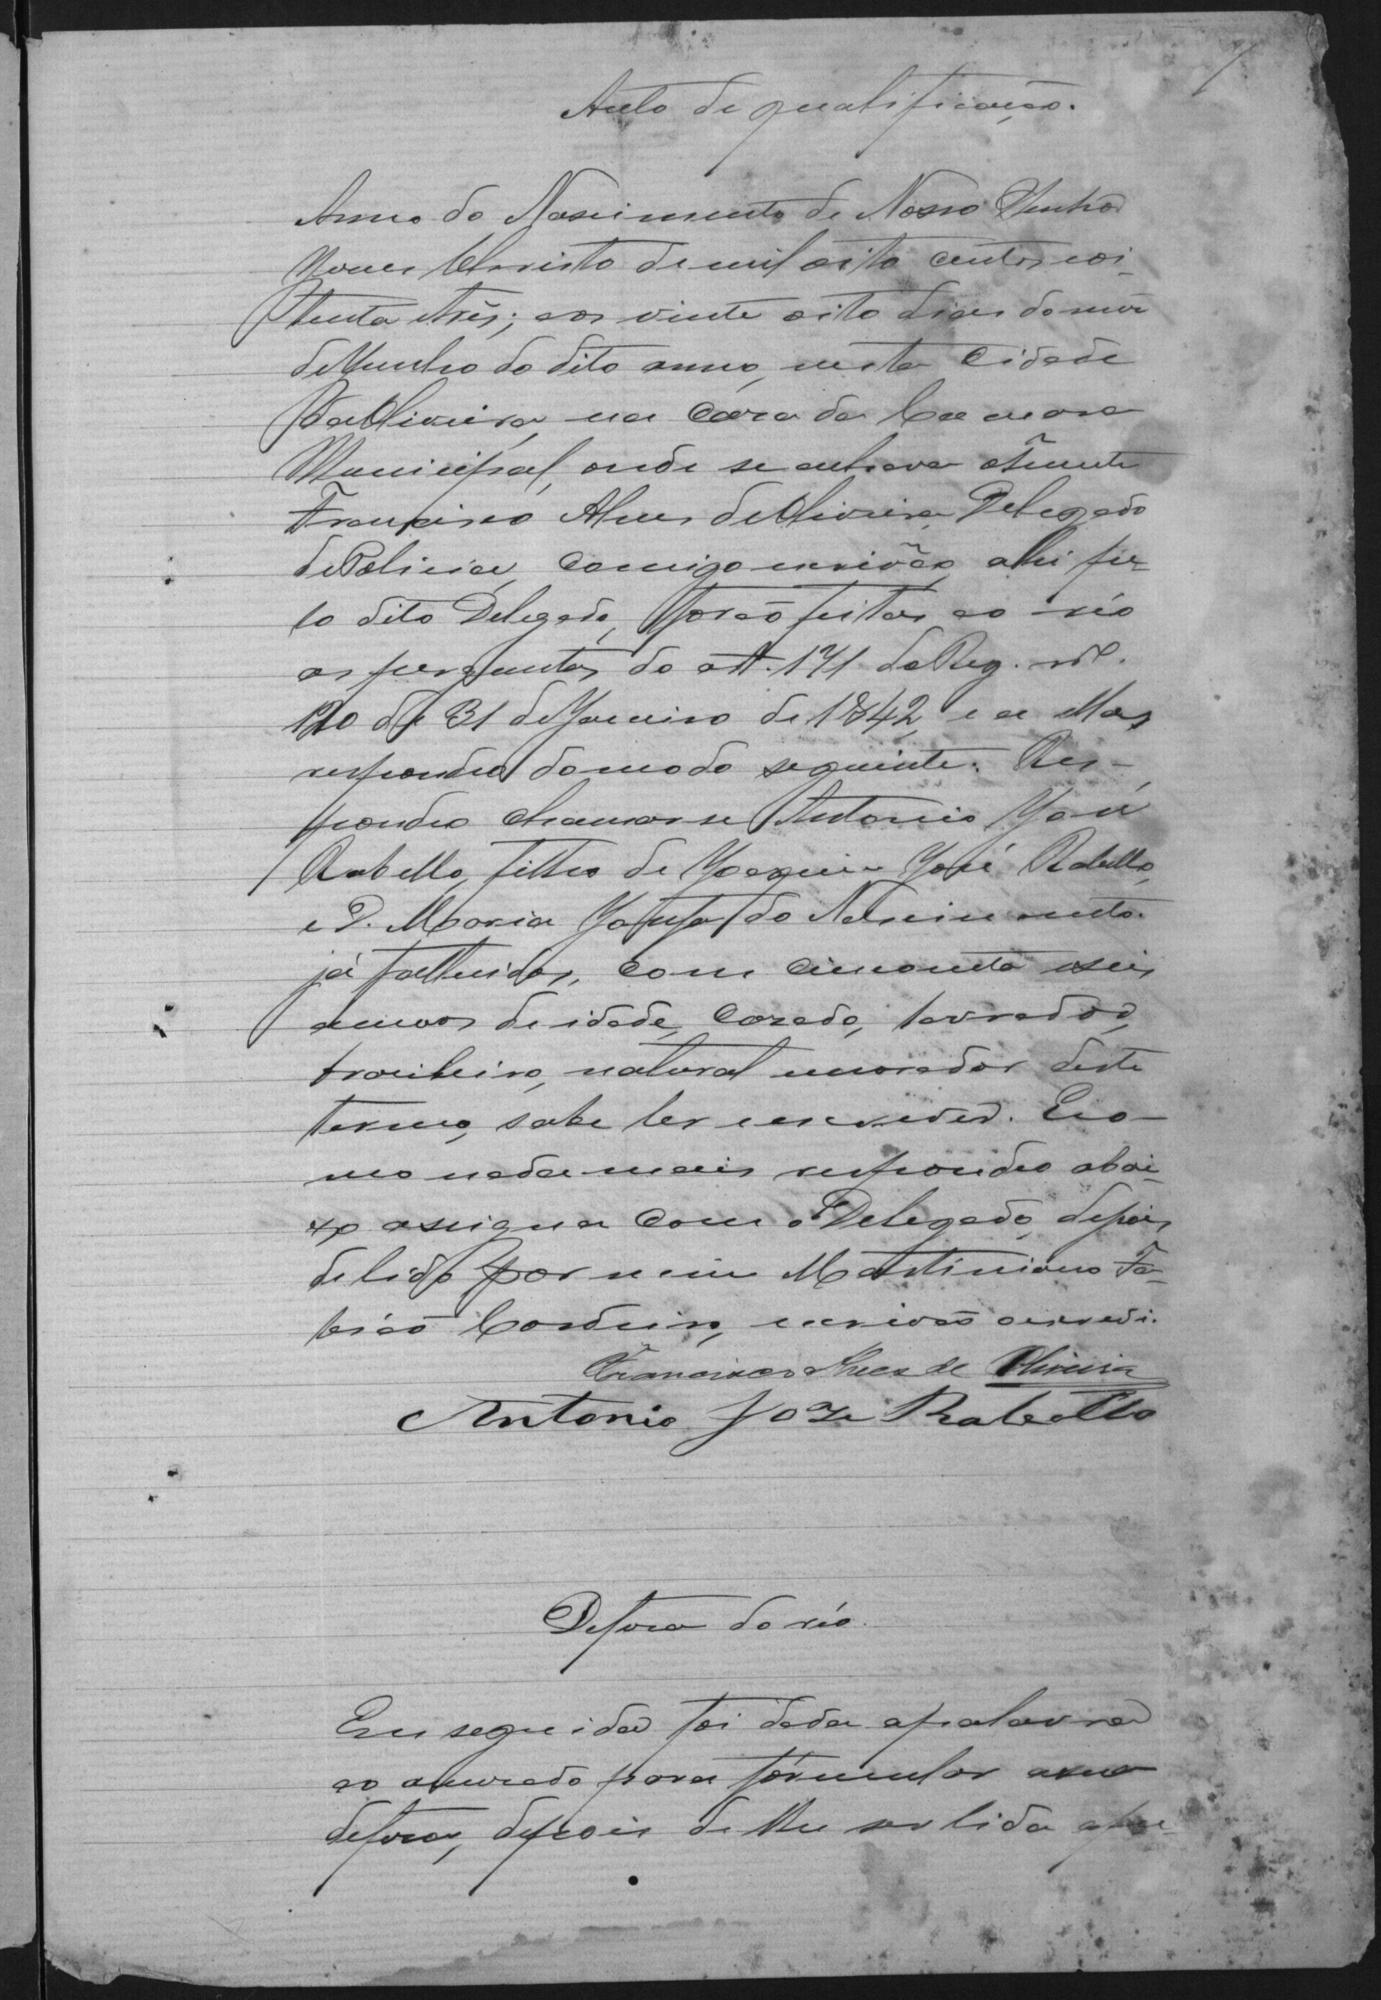 7
Auto de qualificação.
Anno do Nascimento de Nosso Senhor
Jesus Christo de mil oito centos e oi-
tenta e três; aos vinte oito dias do mez
de Junho do dito anno, nesta Cidade
da Oliveira, na Caza da Camara
Municipal, onde se achava o Tenente
Francisco Alves de Oliveira Delegado
de Policia, comigo escrivão, ahi pe-
lo dito Delegado, forão feitas ao réo
as perguntas do art. 171 do Reg. nº.
120 de 31 de Janeiro de 1842, e a ellas
respondeu do modo seguinte. Res-
pondeo chamar se Antonio José
Rabello, filho de Joaquim José Rabello,
e D. Maria Josefa do Nascimento
já fallecidos, com cincoenta e seis
annos de idade, cazado, lavrador,
brazileiro, natural e morador deste
termo, sabe ler e escrever. E co-
mo nada mais respondeo abai-
xo assigna com o Delegado, depois
de lido por mim Martiniano Fa-
bião Cordeiro, escrivão o escrevi.
Francisco Alves de Oliveira
Antonio Joze Rabello
Defeza do réo.
Em seguida foi dada a palavra
ao accuzado para formular a sua
defeza, depois de lhe ser lida a pe-